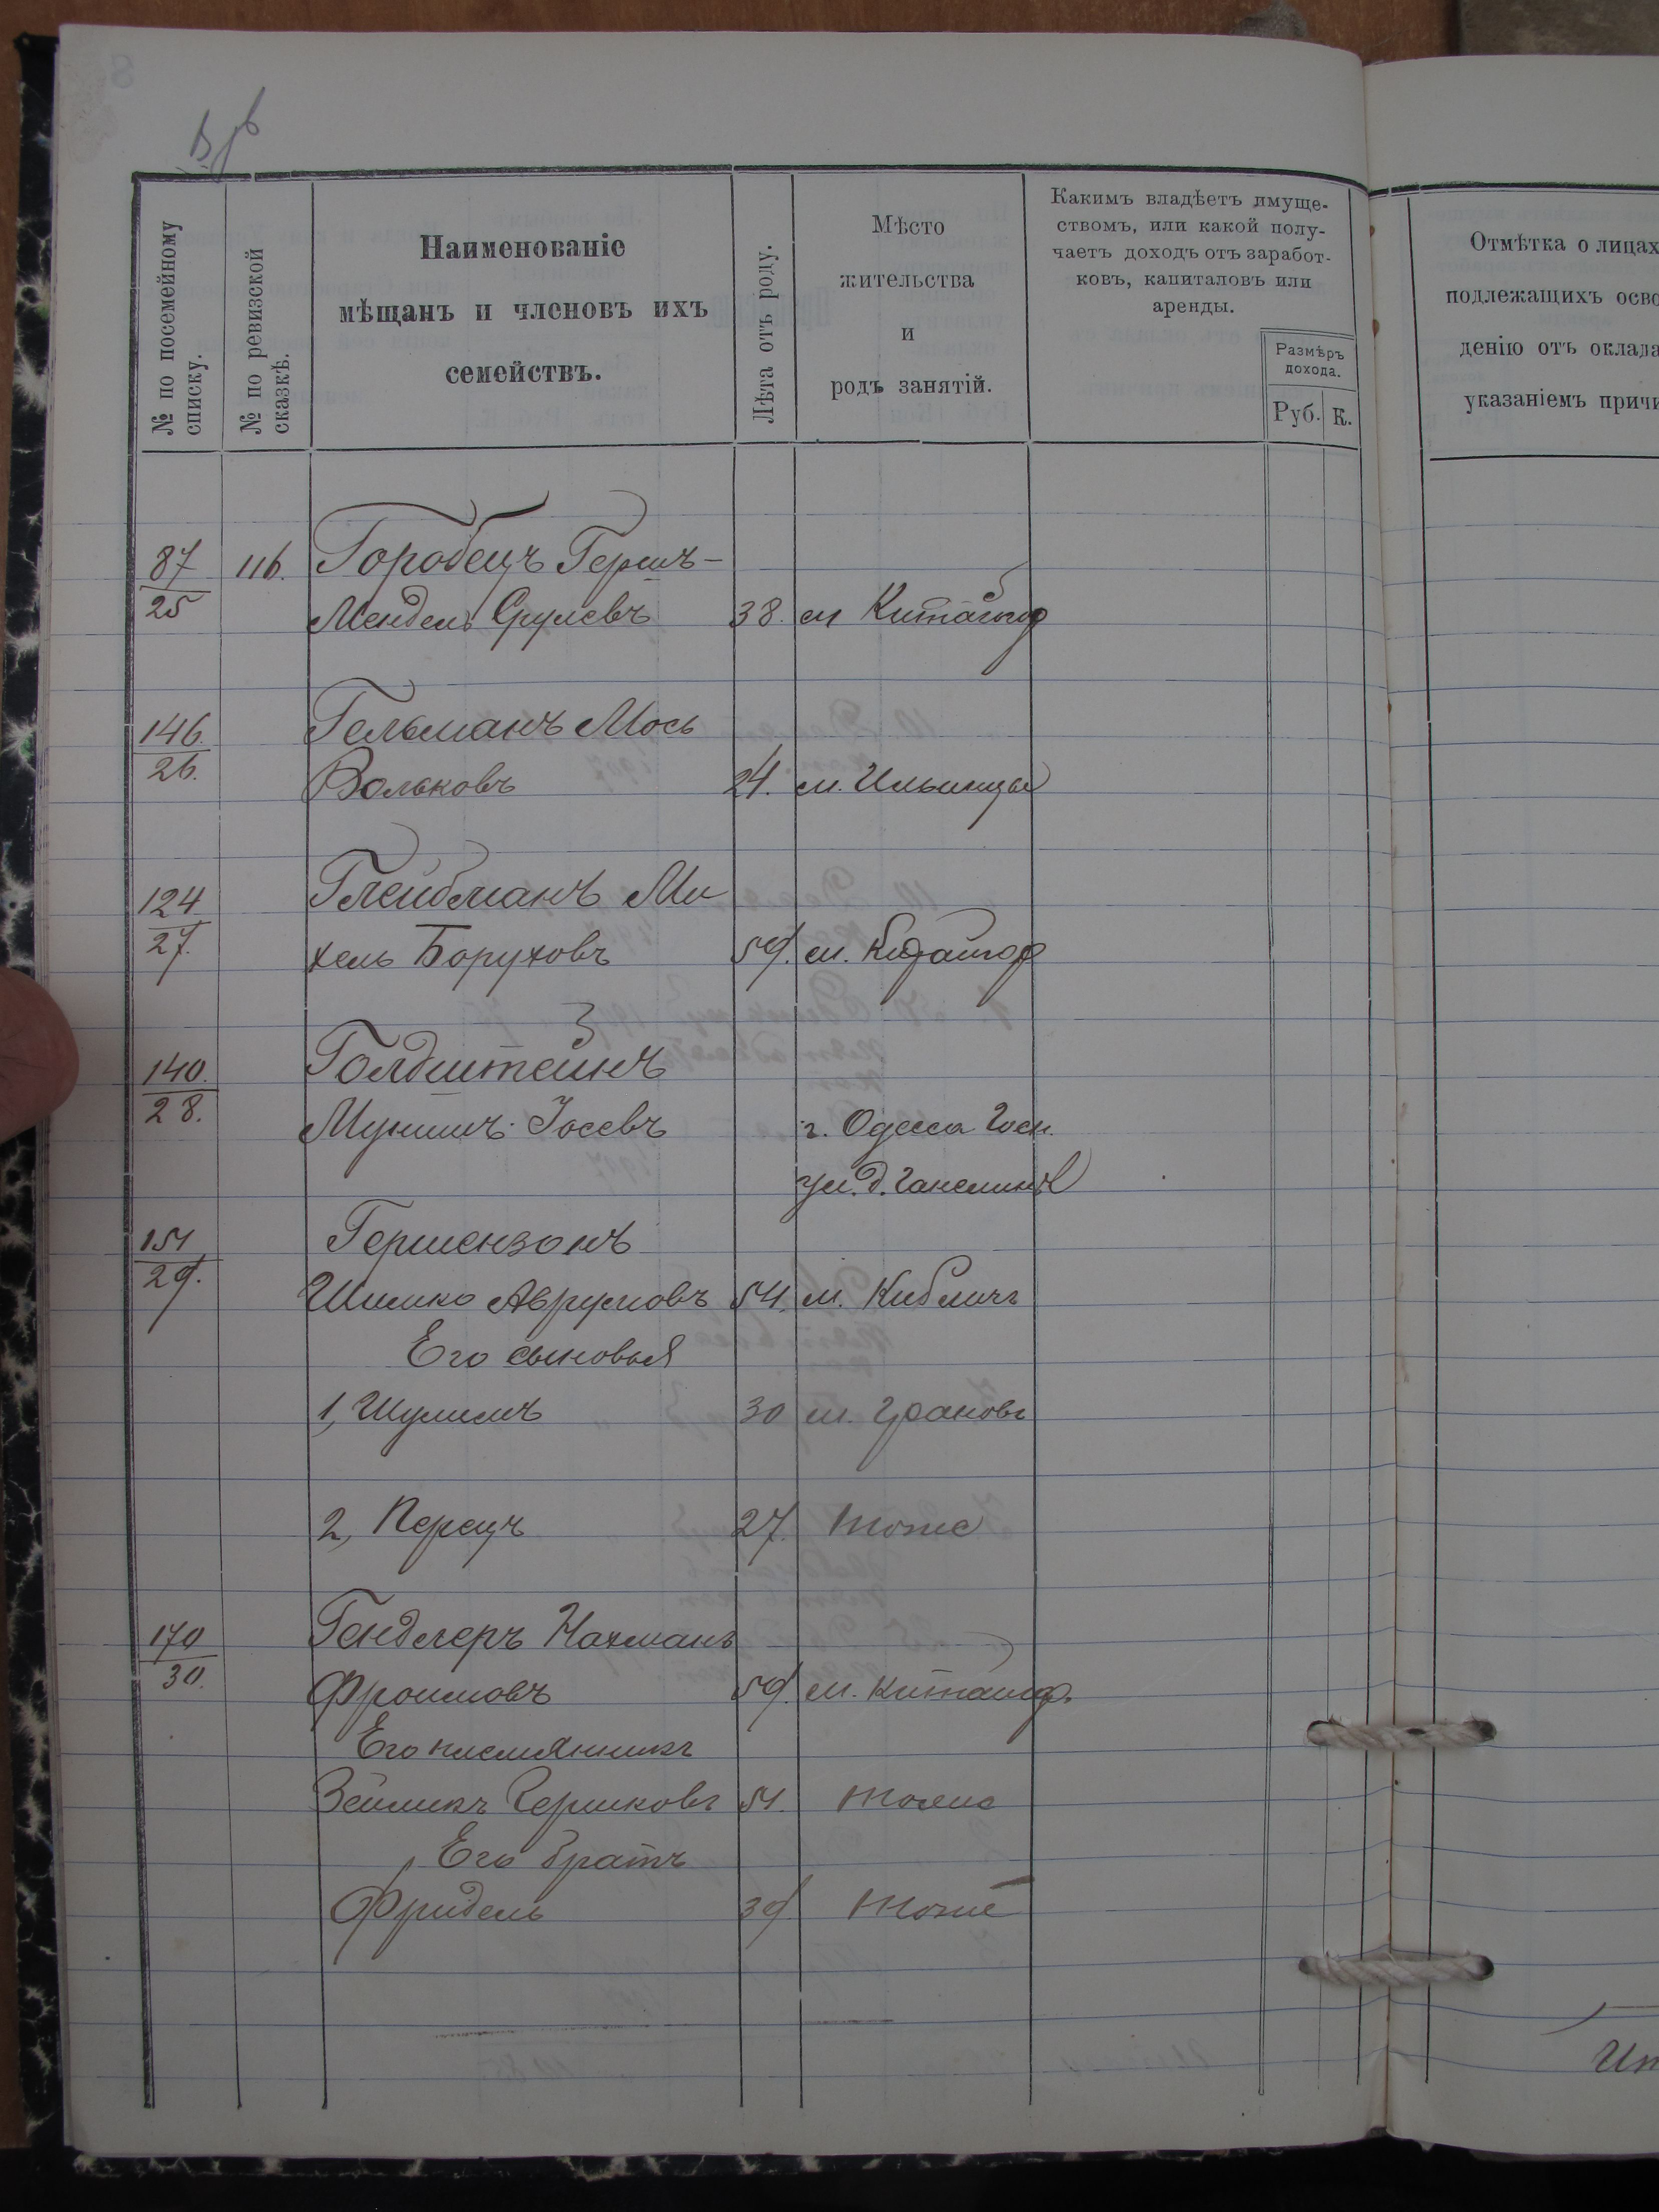 № по посемейному
списку.
№ по ревизской
сказкѣ.
Наименованіе
мѣщанъ и членовъ ихъ
семействъ.
Лѣта отъ роду.
Мѣсто
жительства
и
родъ занятій.
Какимъ владѣетъ имуще-
ствомъ, или какой полу-
чаетъ доходъ отъ заработ-
ковъ, капиталовъ или
аренды.
Размѣръ
дохода.
Руб. К.
Отмѣтка о лицах
подлежащихъ осво
денію отъ оклада
указаніемъ причи
87 116. Горобецъ Гершъ-
25 Мендель Срулевъ 38. м Китайгор
146. Гельманъ Мось
26. Вольковъ 24. м. Ильинцы
124 Глейбманъ Ми
27. хель Боруховъ 59. м. Китайгор
140. Голдштейнъ
28. Мунишъ Іосевъ г. Одесса Госп.
ул. д.
151 Гершензонъ
29. Шимко Аврумовъ 54. м. Кибличъ
Его сыновья
1, Шулимъ 30 м. Грановъ
2, Перецъ 27. тоже
170 Гендлеръ Нахманъ
30. Фроимовъ 59. м. Китайгор.
Его племянникъ
Зейликъ Гершковъ 51. тоже
Его братъ
Фридель 39 тоже
Ит